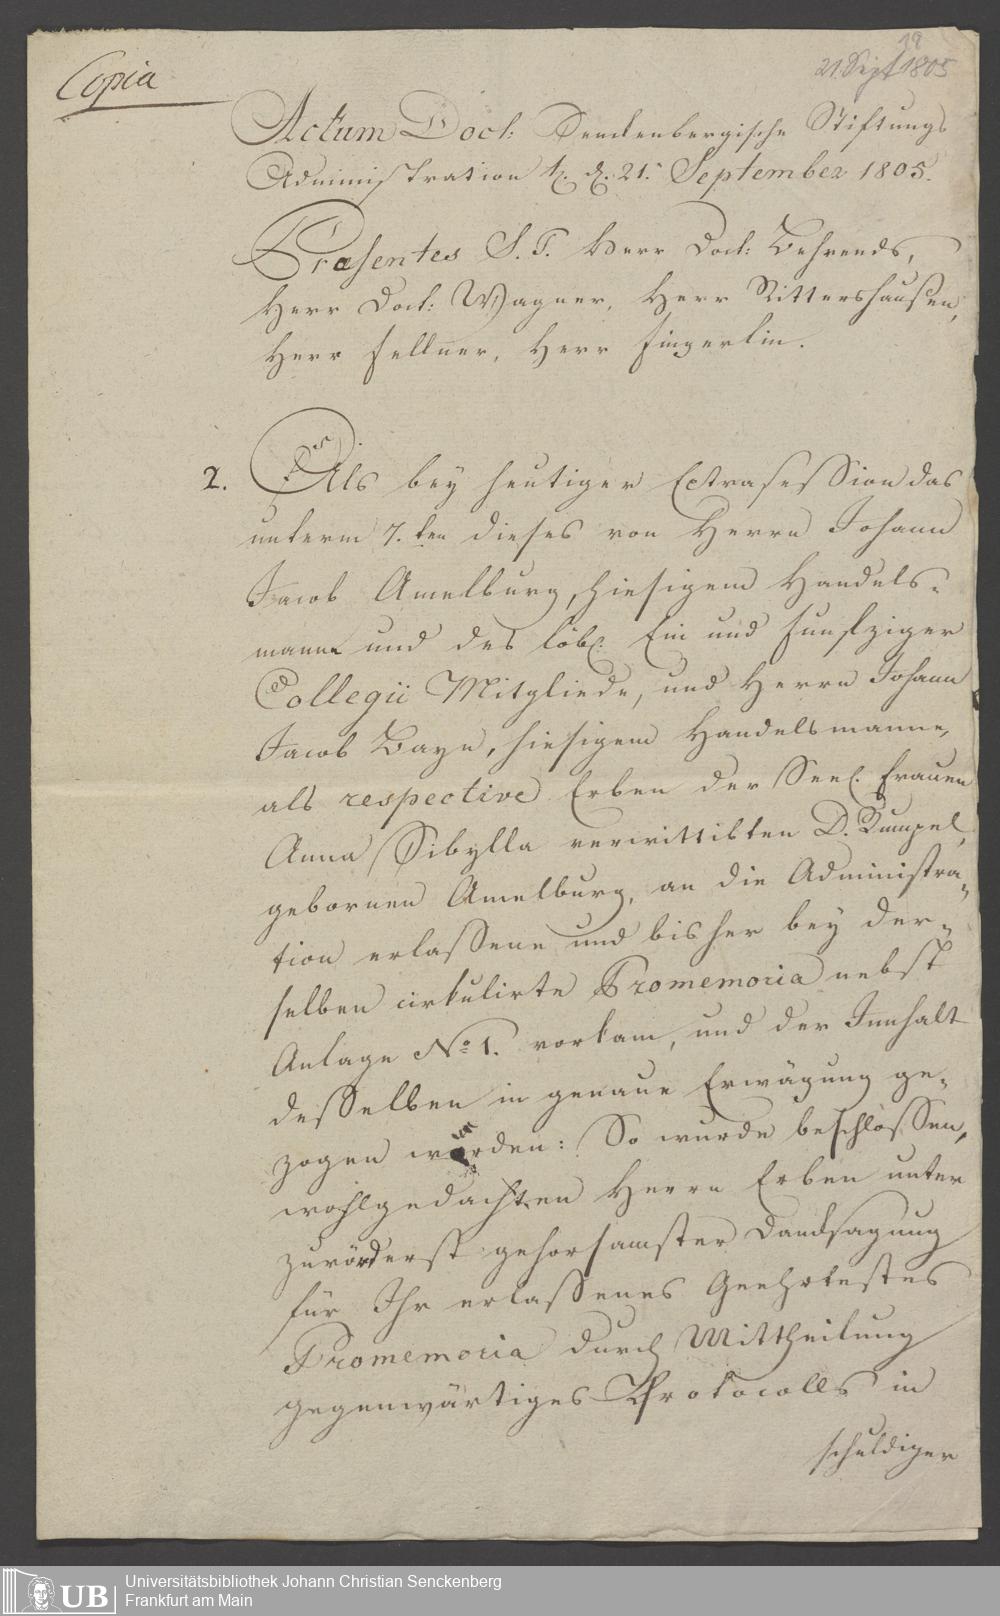 Copia
19
21. Sept 1805
Actum Doct: Senckenbergische Stiftungs
Administration d. 21. September 1805.
Præsentes S. T. Herr Doct: Behrends,
Herr Doct: Wagner, Herr Rittershausen,
Herr Fellner, Herr Fingerlin.
2. Als bey heutiger Extrasession das
unterm 7.ten dieses von Herrn Johann
Jacob Amelburg, hiesigem Handels-
manne und des löbl. Ein und funfziger
Collegii Mitgliede, und Herrn Johann
Jacob Bayn, hiesigem Handelsmanne,
als respective Erben der Seel. Frauen
Anna Sibylla verwittibten D. Rumpel,
gebornen Amelburg, an die Administra-
tion erlassene und bisher bey der-
selben cirkulirte Promemoria nebst
Anlage No. 1. vorkam, und der Innhalt
desselben in genaue Erwägung ge-
zogen worden: So wurde beschlossen,
wohlgedachten Herrn Erben unter
zuvörderst gehorsamster Danksagung
für Ihr erlassenes Geehrtestes
Promemoria durch Mittheilung
gegenwärtiges Protocolls in
schuldiger
UB
Universitätsbibliothek Johann Christian Senckenberg
Frankfurt am Main